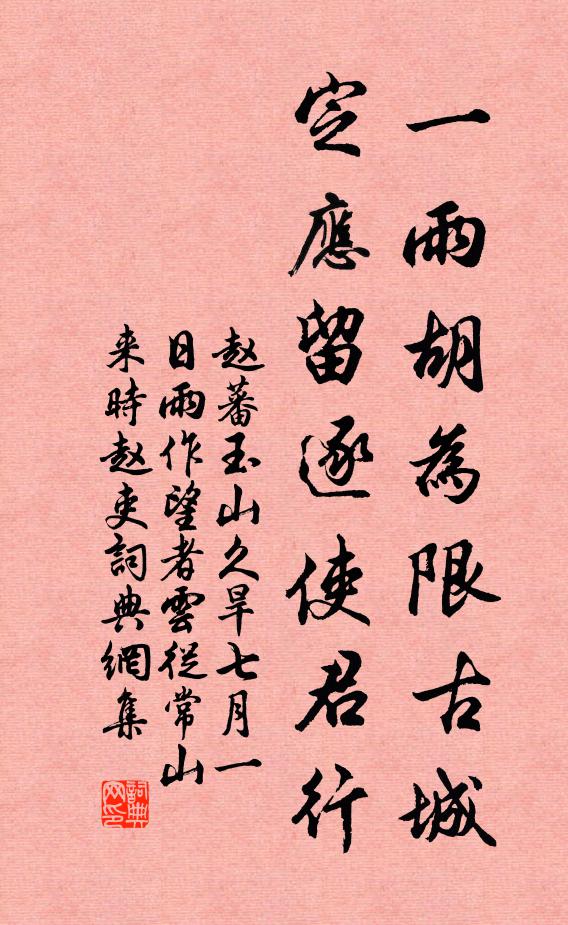 一雨胡為限古城
定應留逐使君行
赵蕃玉山久旱七月一
日雨作望者雲從常山
来時赵吏詞典網集
詞典网印